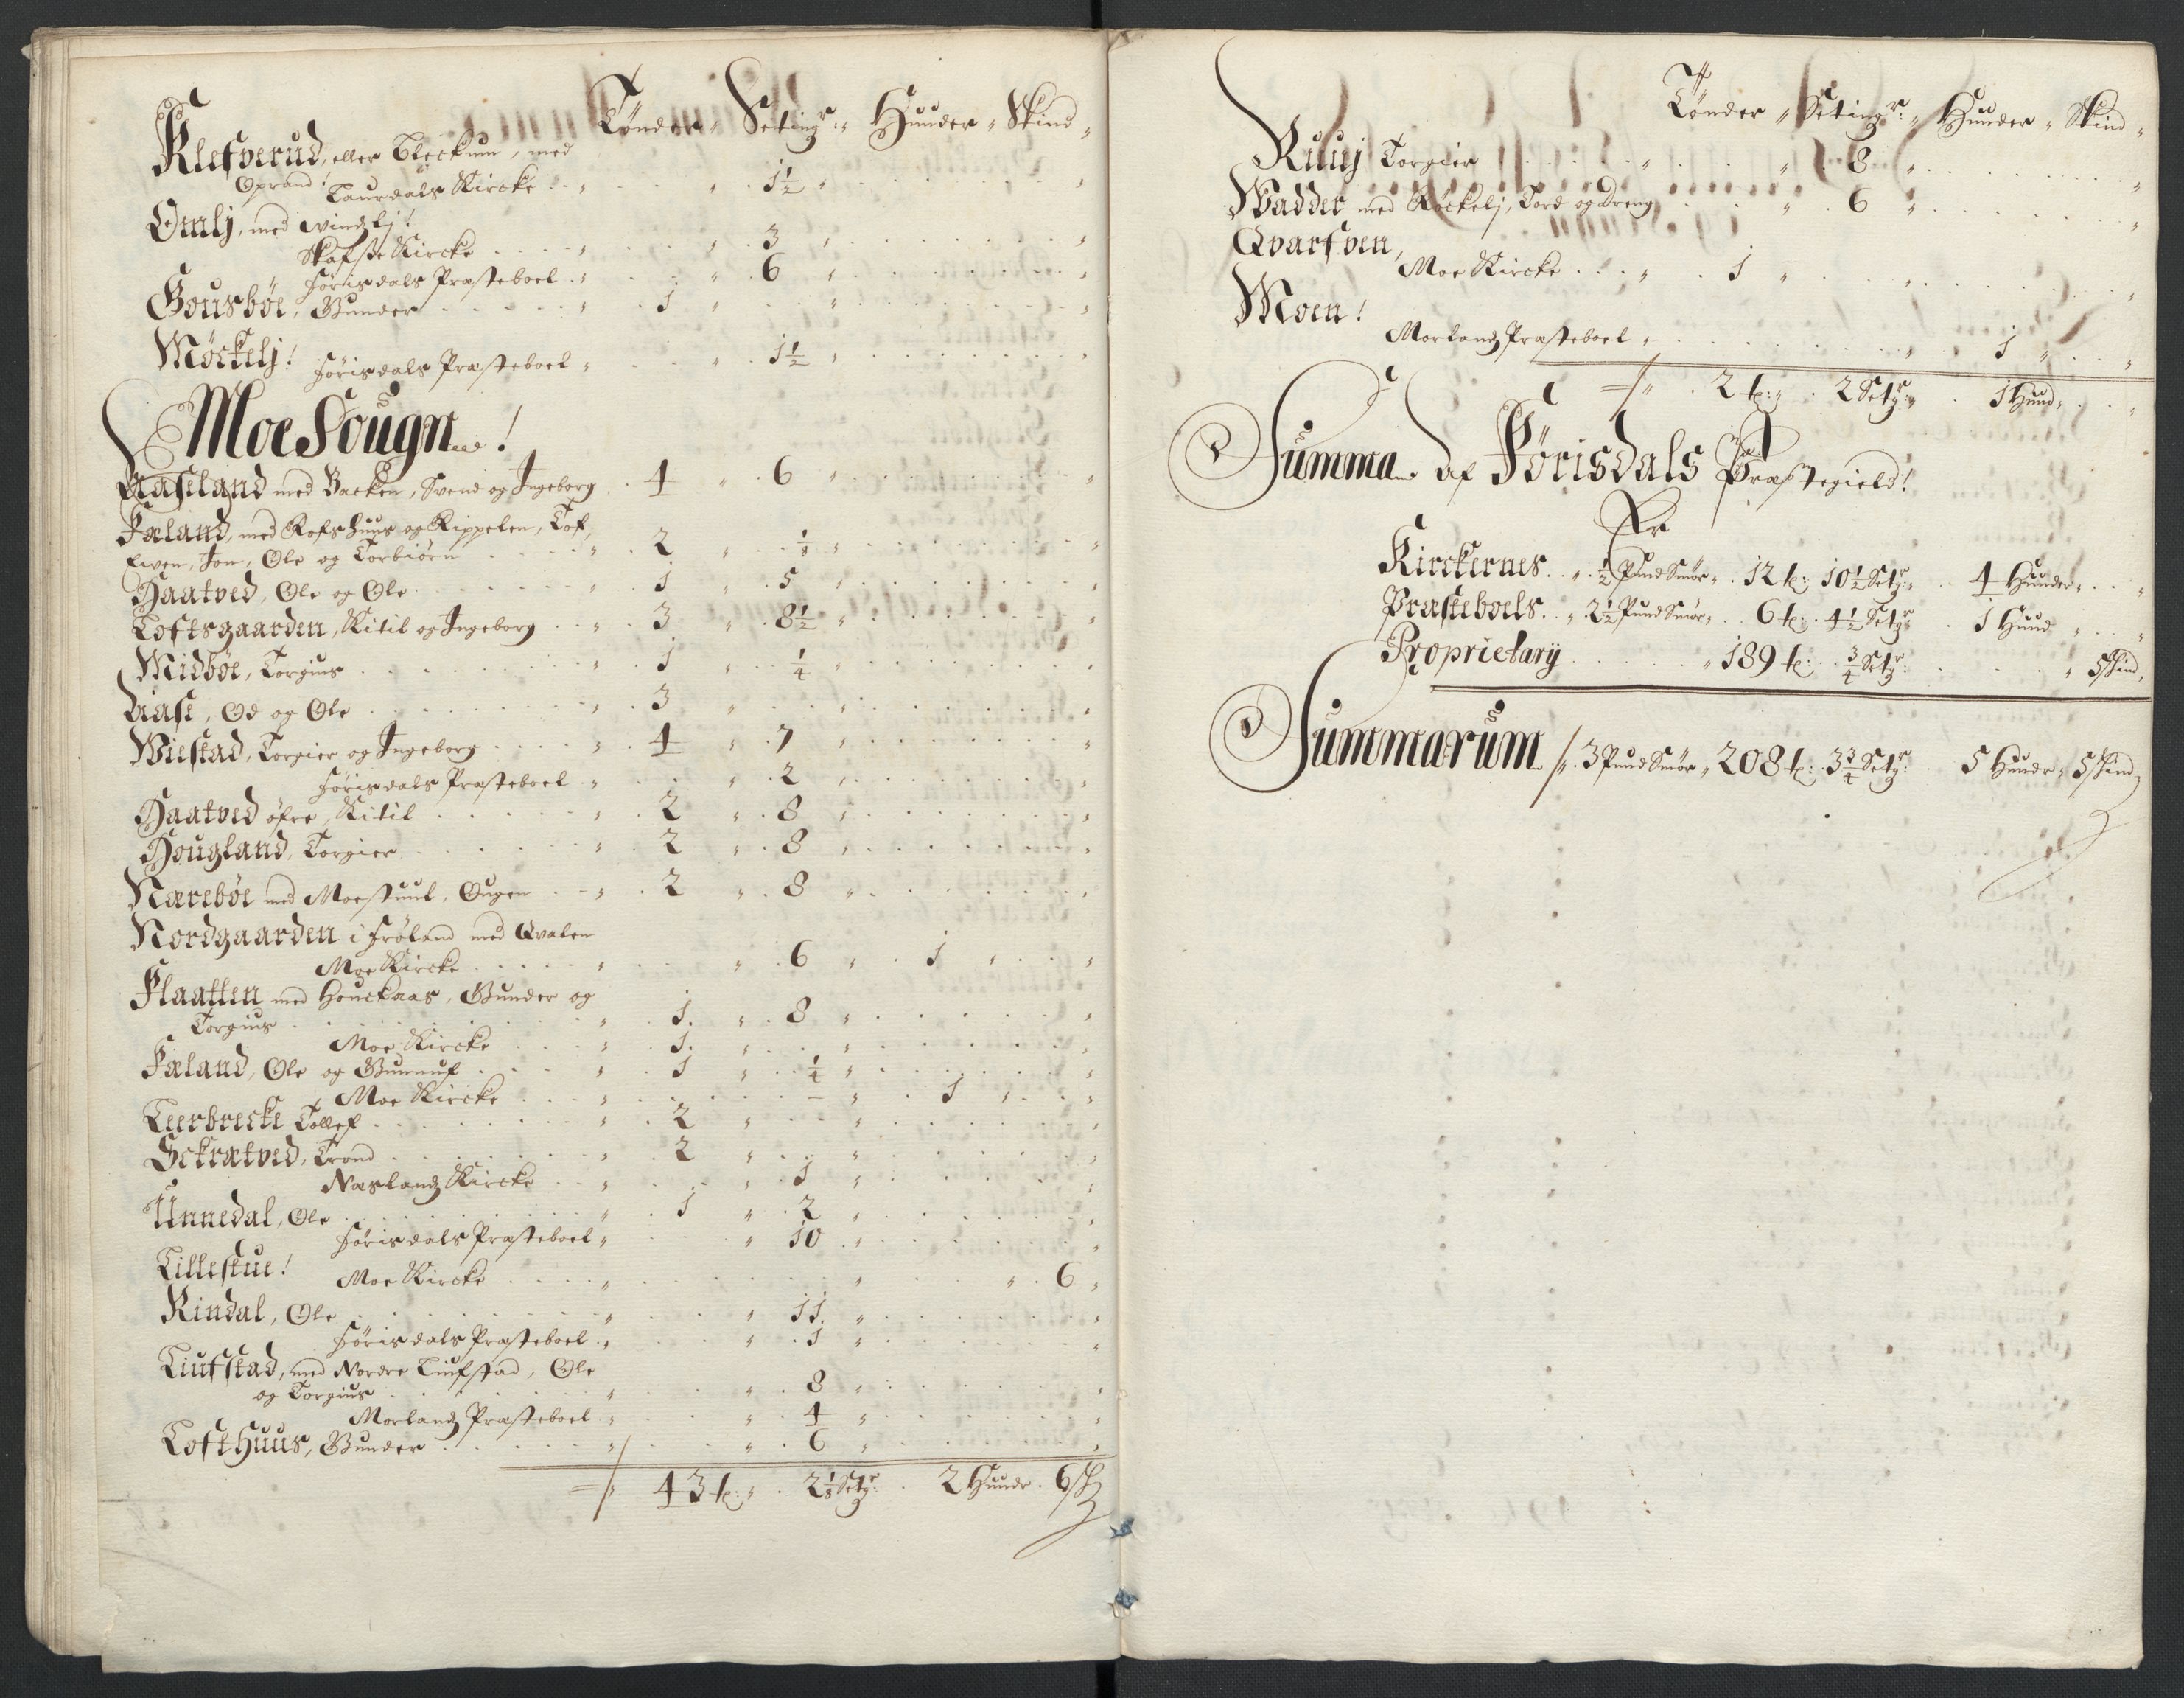 Tønder „ Seting:r „ Hunder „ Skind „
Klefverud, eller Bleckum, med
Oprand! Laurdals Kircke . . „ . . . „ . 1½ „ . . . „
Omlj, med Vindlj!
Skafsse Kircke . . . „ . . . „ . 3 „ . . . „
Førisdals Præsteboel . „ . . . „ . 6 „ . . . „
Gousbøe, Gunder . . . „ . 1 „ . . . „ . . . „
Møckelj! Førisdals Præsteboel „ . . . „ . 1½ „ . . . „
Moe Sougn!
Aaseland med Backen, Svend og Ingeborg . 4 „ . 6 „ . . . „
Fæland, med Rofshuus og Kippelen, Tof,
Even, Jon, Ole og Torbiørn . . . „ . 2 „ . ⅛ „ . . . „
Haatved, Ole og Ole . . . „ . 1 „ . 5 „ . . . „
Toftsgaarden, Kitil og Ingeborg . . „ . 3 „ . 8½ „ . . . „
Midbøe, Torgius . . . „ . 1 „ . ¼ „ . . . „
Aase, Od og Ole . . . „ . 3 „ . . . „ . . . „
Wiestad, Torgier og Ingeborg . . . „ . 4 „ . 7 „ . . . „
Førisdals Præsteboel . „ . . . „ . 2 „ . . . „
Haatved øfre, Kitil . . . „ . 2 „ . 8 „ . . . „
Hougland, Torgier . . . „ . 2 „ . 8 „ . . . „
Nærebøe med Moestuul, Ougen . . „ . 2 „ . 8 „ . . . „
Nordgaarden i Frøland med Qvalen
Moe Kircke . . . „ . . . „ . 6 „ . 1 „ . . „
Flaatten med Houckaas, Gunder og
Torgius . . . „ . 1. „ . 8 „ . . . „
Moe Kircke . . . „ . 1. „ . . . „ . . . „
Fæland, Ole og Gunnuf . . . „ . 1 „ . ¼ „ . . . „
Moe Kircke . . . „ . . . – „ . 1 „ . . „
Leerbrecke Tollef . . . „ . 2 „ . . . „ . . . „
Sckrætved, Trond . . . „ . 2 „ . . „ . . . „
Næslandz Kircke . . „ . . . „ . 1 „ . . . „
Unnedal, Ole . . . „ . 1 „ . 2 „ . . . „
Førisdals Præsteboel „ . . . „ 10 . „ . . . „
Lillestue! Moe Kircke . . . „ . . . „ . . . „ . 6 „
Rindal, Ole . . . „ . . . „ . 11. „ . . . „
Førisdals Præsteboel . „ . . . „ . 1 „ . . . „
Liufstad, med Nordre Liufstad, Ole
og Torgius . . . „ . . . „ . 8 „ . . . „
Morlandz Præsteboel . „ . . . „ . 4 „ . . . „
Lofthuus, Gunder . . . „ . . . „ . 6 „ . . . „
„ 43 t: „ . 2⅛ Set:r . 2 Hundr . 6 sk
Tønder „ Seting:r „ Hunder „ Skind „
Ruuj Torgier . . . „ . . . „ . 8 „ . . . „
Wadder med Røckelj, Tord og Dreng . . . „ . 6 „ . . . „
Qvartven,
Moe Kircke . . . „ . 1 „ . . . „ . . . „
Moen!
Morlandz Præsteboel „ . . . „ . 1 „ . . „
„ . 2 t: „ . 2 Set:r „ . 1 Hund „ . . „
Summa af Førisdals Præstegield!
Er
Kirckernes . . „ . ½ Pund Smør „ . 12 t: 10½ Set:r „ . 4 Hunder „ . . „
Præsteboels . . „ 2½ Pund Smør „ . 6 t: . 4½ Set:r . 1 Hund „ . . „
Proprietarij . . . „ 189 t: . ¾ Set:r . . . „ 5 skind „
Summarum „ . 3 Pund Smør „ 208 t: . 3¾ Set:r 5 Hundr „ 5 skind